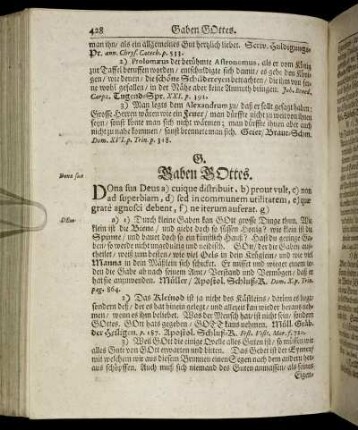 428 Gaben GOttes.
man ihn/ als ein allgemeines Gut hertzlich liebet. Scriv. Huldigungs-
Pr. ann. Chrys. Catech. p. 533.
2) Ptolomæus der berühmte Astronomus, als er vom König
zur Taffel beruffen worden/ entschuldigte sich damit/ es gehe den Köni-
gen/ wie denen/ die schöne Schildereyen betrachten/ die ihm von fer-
ne wohl gefallen/ in der Nähe aber keine Anmuth bringen.
Tugend-Spr. XXI. p. 391.
3) Man legte dem Alexandro zu/ daß er sollt gesagt haben:
Grosse Herren wären wie ein Feuer/ man dürffte nicht zu weit von ihnen
seyn/ sonst könte man sich nicht wärmen; man dürffte ihnen aber auch
nicht zu nahe kommen/ sonst brennete man sich. Geier/
Dom. XVI. p. Trin. p. 318.
G.
Gaben GOttes.
Dona sua Deus a) cuique distribuit, b) prout vult, c) non
ad superbiam, d) sed in communem utilitatem, e) quæ
gratè agnosci debent, f) ne iterum auferat. g)
1) Durch kleine Gaben kan GOtt grosse Dinge thun. Wie
klein ist die Biene/ und giebt doch so süssen Honig? wie klein ist die
Spinne/ und bauet doch so ein künstlich Hauß? Hast du geringe Ga-
ben so werde nicht ungedultig und neidisch. GOtt/ der die Gaben aus-
theilet/ weiß am besten/ wie viel
Manna in dein
die Gabe ab nach seinem Amt/ Verstand und Vermögen/ daß er
hat sie anzuwenden. Müller/ Apostol. Schluß-K. Dom. X. p. Trin.
pag. 864.
2) Das Kleinod ist ja nicht des Kästleins/ darein es lieget/
sondern deß/ der es hat hinein gelegt/ und allezeit kan wieder heraus neh-
men/ wenn es ihm beliebet. Was der Mensch hat/ ist nicht sein/ sondern
GOttes. GOtt hats gegeben/ GOTT kans nehmen. Müll. Gräb.
der Heiligen. p. 187. Apostol. Schluß-K.
3) Weil GOtt die einige Quelle alles Guten ist/ so müssen wir
alles Gute von GOtt erwarten und bitten. Das Gebet ist der Eymer/
mit welchem wir aus diesem Brunnen einen Segen nach dem andern her-
aus schöpffen. Auch muß sich niemand des Guten anmassen/ als seines
Eigen-